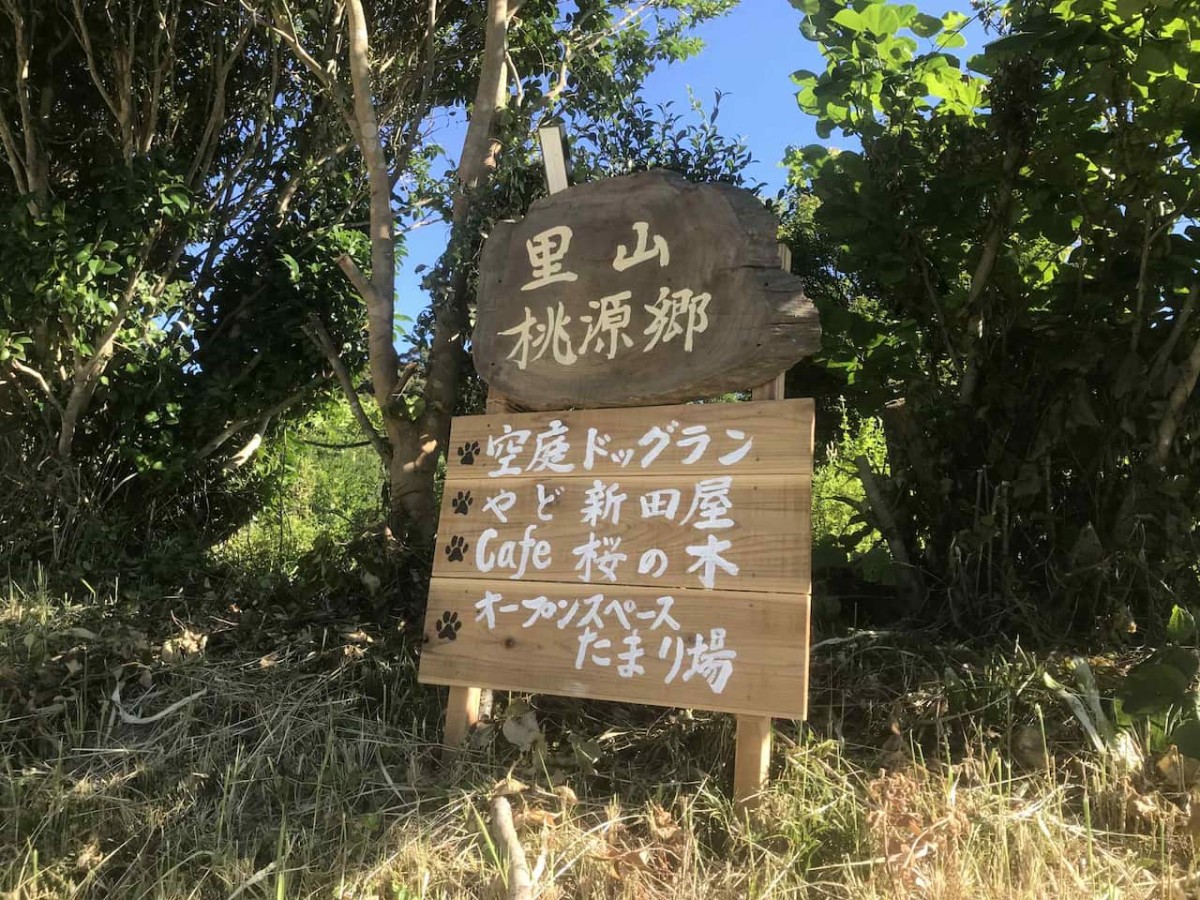 里山
桃源郷
空庭ドッグラン
やど 新田屋
Cafe 桜の木
オープンスペース
たまり場